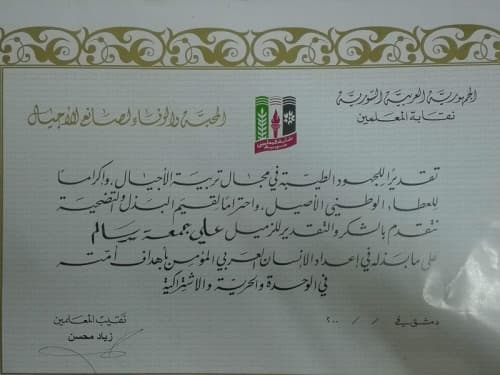 الجمهورية العربية السورية
نقابة المعلمين
المحبة والوفاء لصانع الأجيال
نقابة المعلمين
تقديرًا للجهود الطيبة في مجال تربية الأجيال، وإكرامًا
للعطاء الوطني الأصيل، واحترامًا لقيم البذل والتضحية
نتقدم بالشكر والتقدير للزميل علي جمعة سالم
على ما بذله في إعداد الإنسان العربي المؤمن بأهداف أمته
في الوحدة والحرية والاشتراكية
دمشق في / / ٢٠٠
نقيب المعلمين
زياد محسن